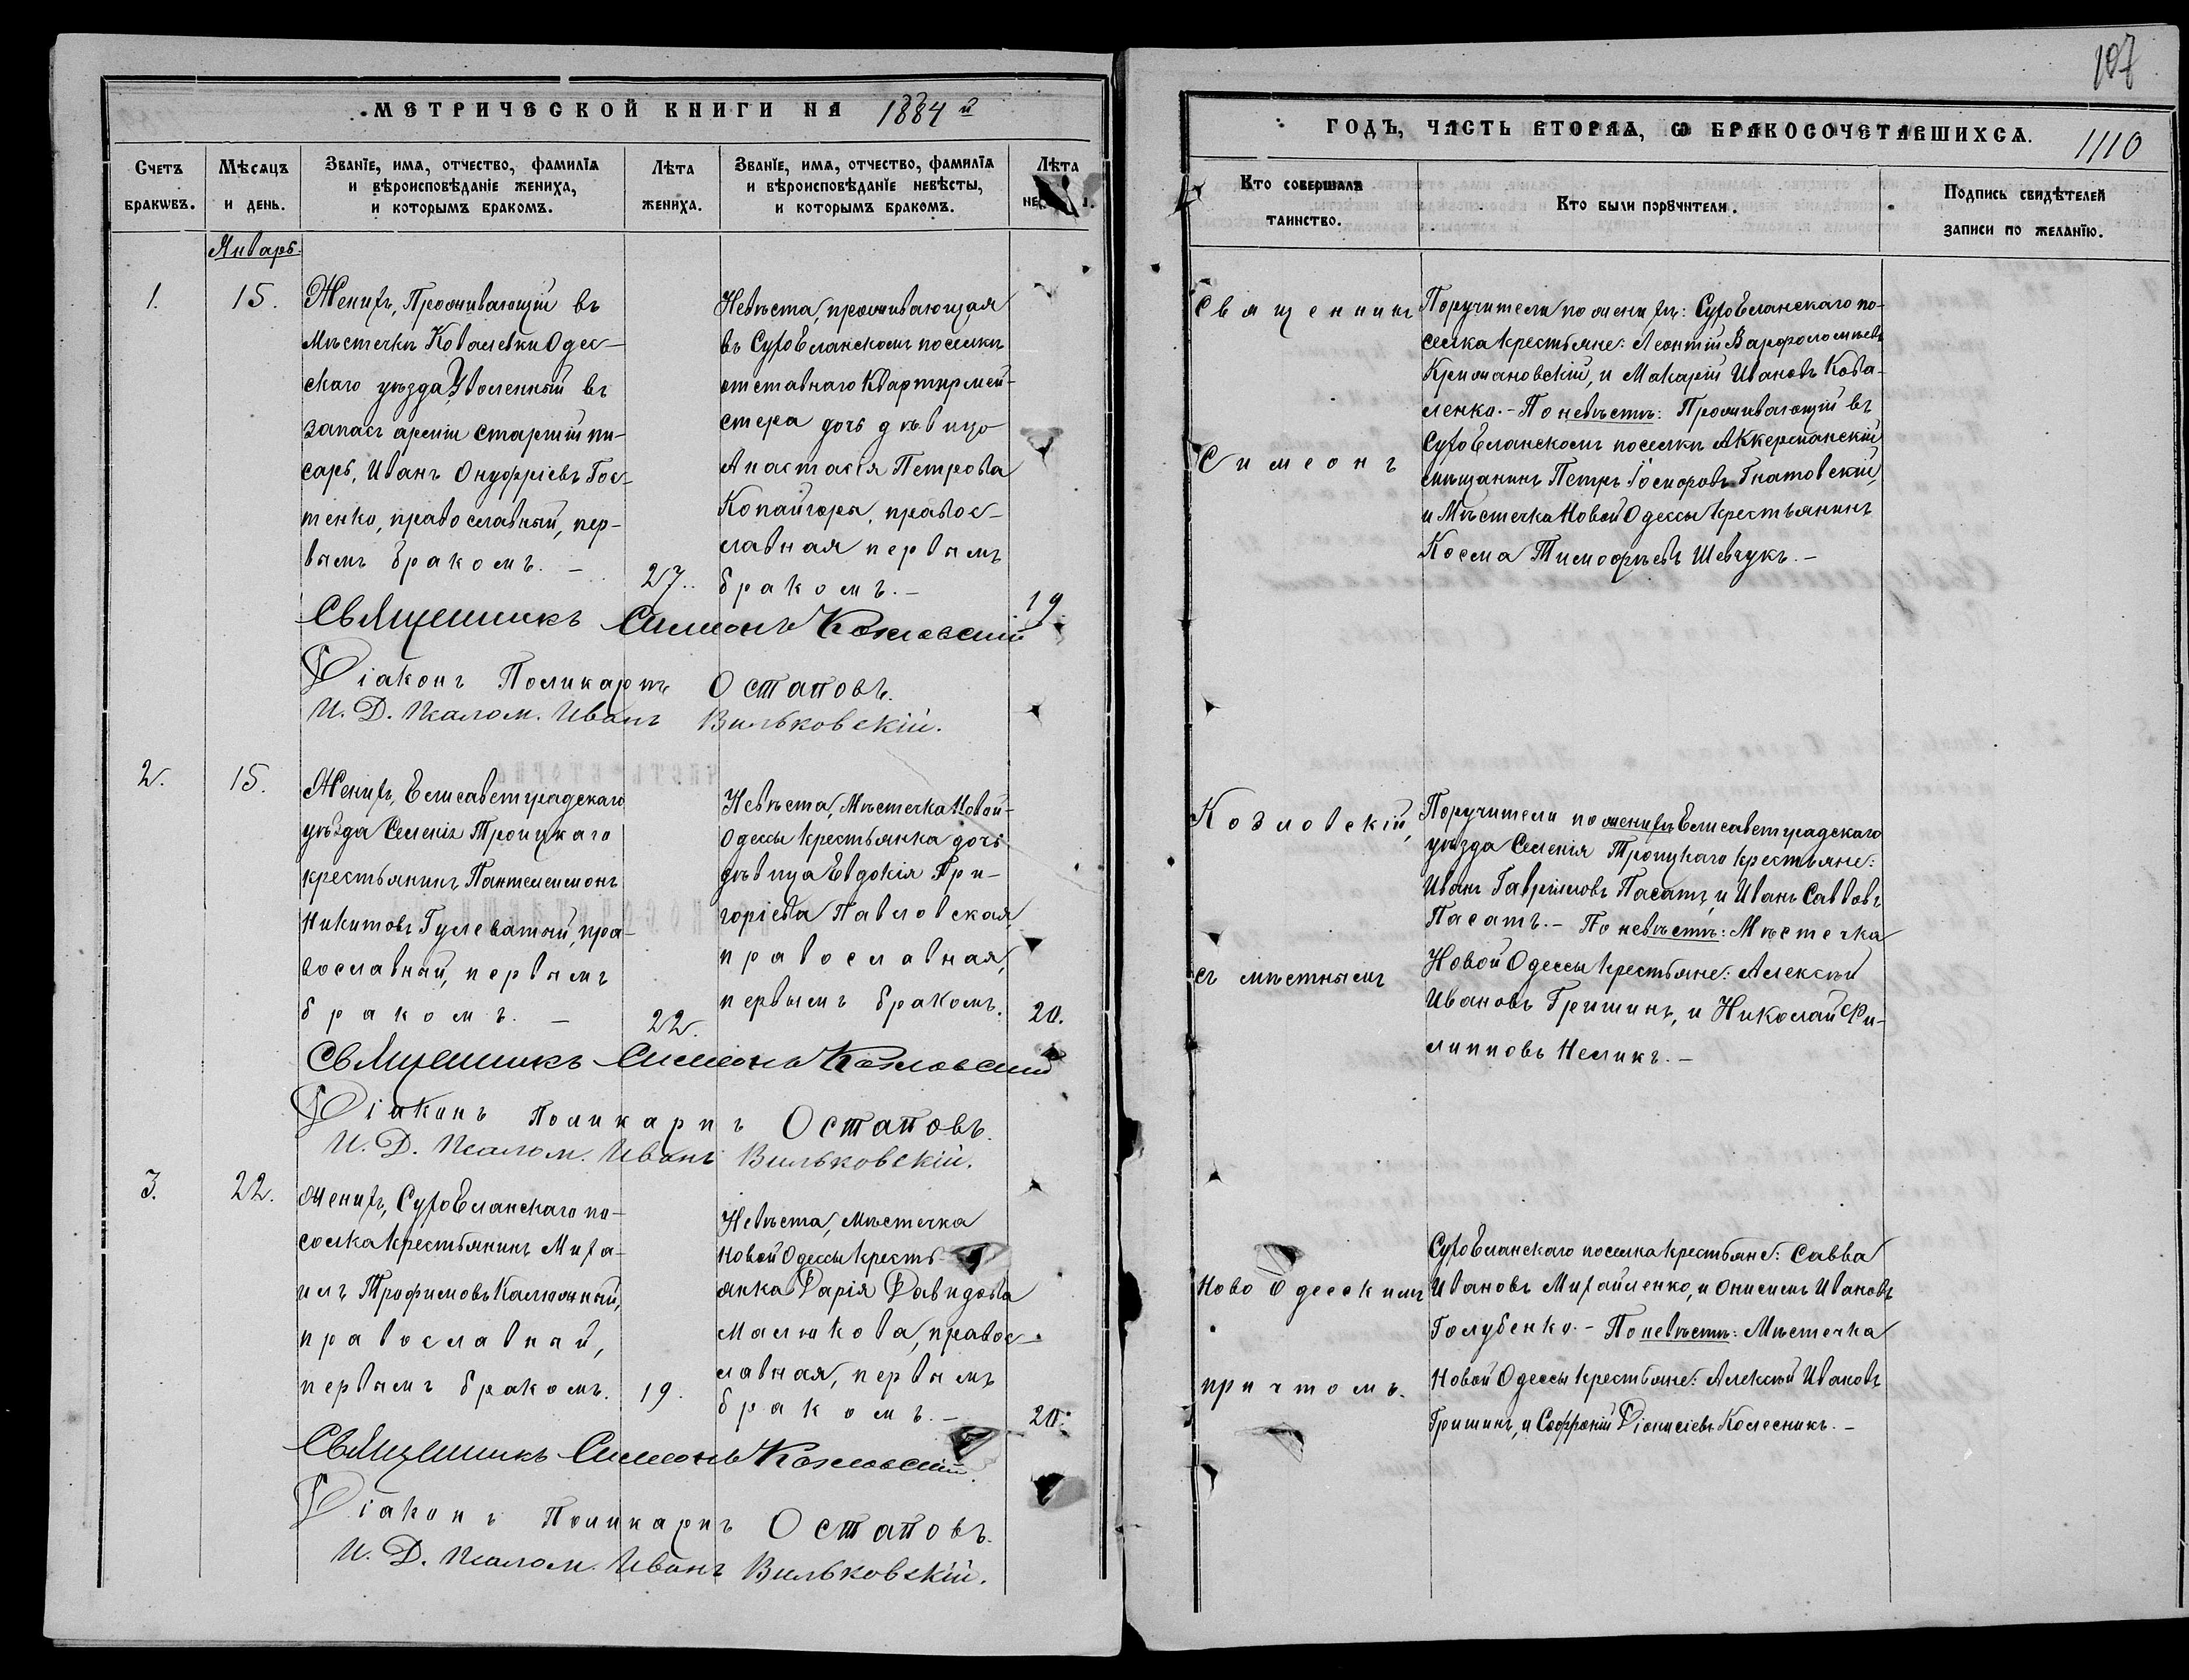 МЕТРИЧЕСКОЙ КНИГИ НА 1884 й
Счетъ браковъ.
Мѣсяцъ и день.
Званіе, имя, отчество, фамилія
и вѣроисповѣданіе жениха,
и которымъ бракомъ.
Лѣта
жениха.
Званіе, имя, отчество, фамилія
и вѣроисповѣданіе невѣсты,
и которымъ бракомъ.
Лѣта
Январь.
1.
15.
Женихъ, Проживающій въ
Мѣстечкѣ Ковалевки Одес-
скаго уѣзда Уволенный въ
запасъ арміи старшій пи-
сарь, Иванъ Онуфріевъ Гос-
тенко, православный, пер-
вымъ бракомъ. —
27.
Невѣста, проживающая
въ СухоЕланскомъ поселкѣ
отставнаго Квартирмей-
стера дочь дѣвица
Анастасія Петрова
Копайгора, правос-
лавная первымъ
бракомъ. —
19.
Священникъ Симеонъ Козловскій
Діаконъ Поликарпъ Остаповъ.
И. Д. Псалом. Иванъ Вильковскій.
2.
15.
Женихъ, Елисаветградскаго
уѣзда Селенія Троицкаго
крестьянинъ Пантелеимонъ
Никитовъ Гулеватый, пра-
вославный, первымъ
бракомъ. —
22.
Невѣста, Мѣстечка Новой-
Одессы крестьянка дочь
дѣвица Евдокія Гри-
горіева Павловская,
православная,
первымъ бракомъ.
20.
Священникъ Симеонъ Козловскій
Діаконъ Поликарпъ Остаповъ.
И. Д. Псалом. Иванъ Вильковскій.
3.
22.
Женихъ, СухоЕланскаго по-
селка крестьянинъ Миха-
илъ Трофимовъ Калюжный,
православный,
первымъ бракомъ.
19.
Невѣста, Мѣстечка
Новой Одессы кресть-
янка Дарія Давидова
Малюкова, правос-
лавная, первымъ
бракомъ. —
20.
Священникъ Симеонъ Козловскій.
Діаконъ Поликарпъ Остаповъ.
И. Д. Псалом. Иванъ Вильковскій.
107
ГОДЪ, ЧАСТЬ ВТОРАЯ, Ѡ БРАКОСОЧЕТАВШИХСЯ.
1110
Кто совершалъ
таинство.
Кто были поручители.
Подпись свидѣтелей
записи по желанію.
Священникъ
Симеонъ
Козловскій,
съ мѣстнымъ
Ново Одесскимъ
причтомъ.
Поручители по женихѣ: СухоЕланскаго по-
селка крестьяне: Леонтій Варфоломѣевъ
Крижановскій, и Макарій Ивановъ Кова-
ленко. — По невѣстѣ: Проживающій въ
СухоЕланскомъ поселкѣ Аккерманскій
мѣщанинъ Петръ Гнатовскій,
и Мѣстечка Новой Одессы крестьянинъ
Косма Тимофѣевъ Шевчукъ. —
Поручители по женихѣ Елисаветградскаго
уѣзда Селенія Троицкаго крестьяне:
Иванъ Гавриловъ Пасатъ, и Иванъ Саввовъ
Пасатъ. — По невѣстѣ: Мѣстечка
Новой Одессы крестьяне: Алексѣй
Ивановъ Гришинъ, и Николай Фи-
липповъ Нелинъ. —
СухоЕланскаго поселка крестьяне: Савва
Ивановъ Михайленко, и Онисимъ Ивановъ
Голубенко. — По невѣстѣ: Мѣстечка
Новой Одессы крестьяне: Алексѣй Ивановъ
Гришинъ, и Софроній Діонисіевъ Колесникъ. —